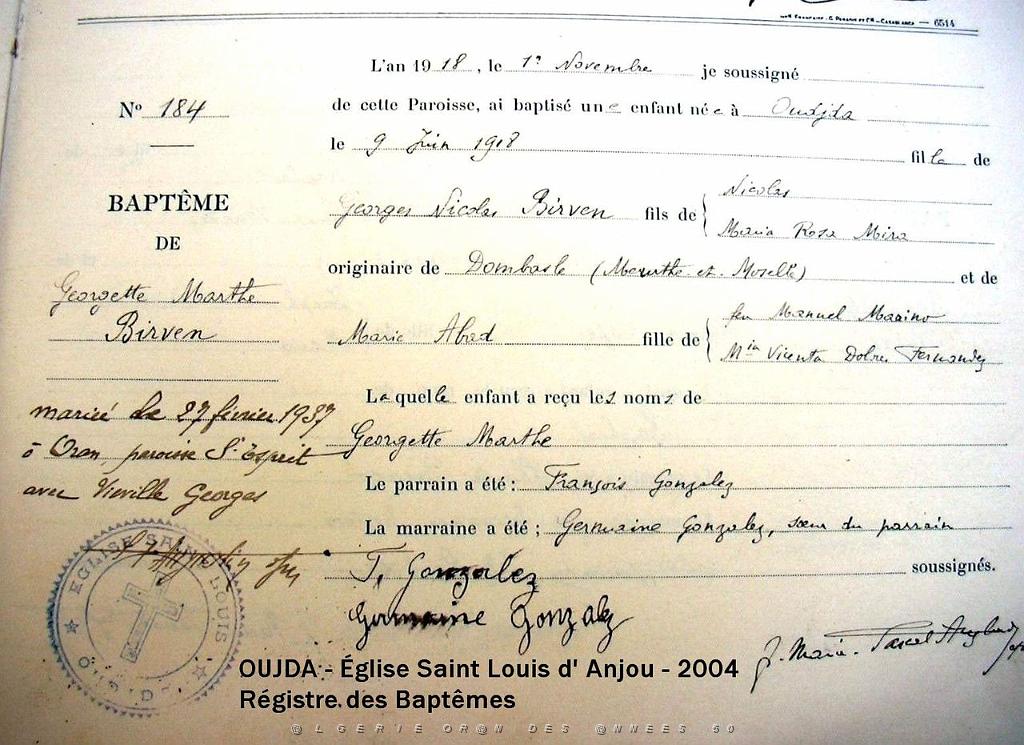 6514
L'an 1918, le 1er Novembre je soussigné
Nº 184
de cette Paroisse, ai baptisé une enfant née à Oudjda
le 9 Juin 1918 fille de
BAPTÊME
DE
Georgette Marthe
Birven
Georges Nicolas Birven fils de { Nicolas
Maria Rosa Mira
originaire de Dombasle (Meurthe-et-Moselle) et de
Marie Abad fille de { feu Manuel Marino
Mia Vicenta Dolres Fernandez
Laquelle enfant a reçu les noms de
Georgette Marthe
mariée le 27 février 1937
à Oran, paroisse St Esprit
avec Vieville Georges
Le parrain a été : François Gonzalez
La marraine a été ; Germaine Gonzalez, sœur du parrain
F. Gonzalez soussignés.
Germaine Gonzalez
J. Marie-Pascal
EGLISE SAINT LOUIS
OUDJDA
OUJDA - Église Saint Louis d' Anjou - 2004
Régistre des Baptêmes
@LGERIE OR@N DES @NNEES 50